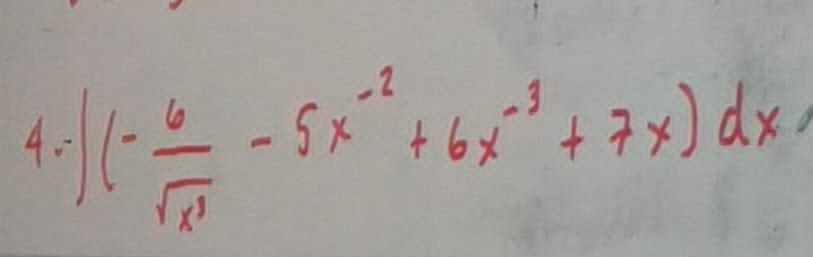 4.- ∫(- 6/√x³ - 5x⁻² + 6x⁻³ + 7x) dx